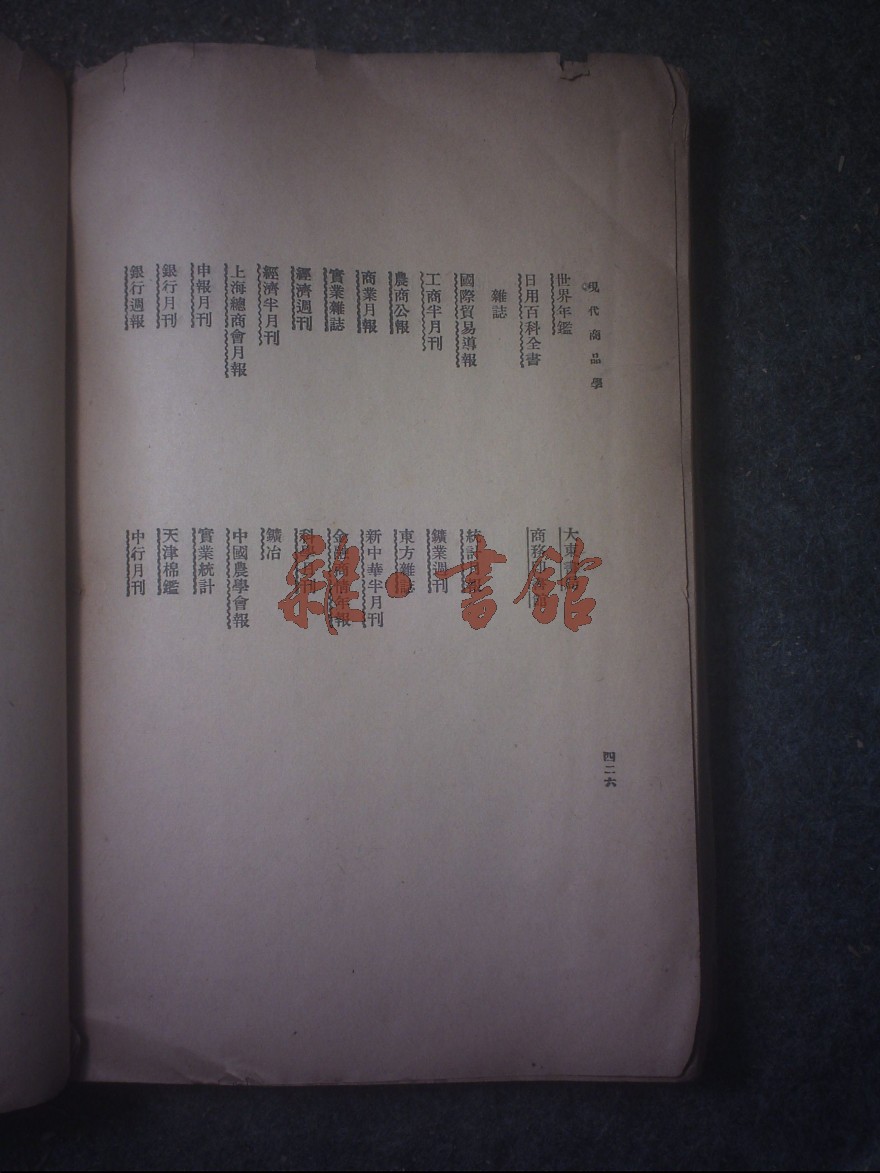 現代商品學
四二六
世界年鑑 大東書局
日用百科全書 商務印書館
雜誌
國際貿易導報 統計月報
工商半月刊 鑛業週刊
農商公報 東方雜誌
商業月報 新中華半月刊
實業雜誌 金融商情年報
經濟週刊 科學月刊
經濟半月刊 鑛冶
上海總商會月報 中國農學會報
申報月刊 實業統計
銀行月刊 天津棉鑑
銀行週報 中行月刊
雜·書館